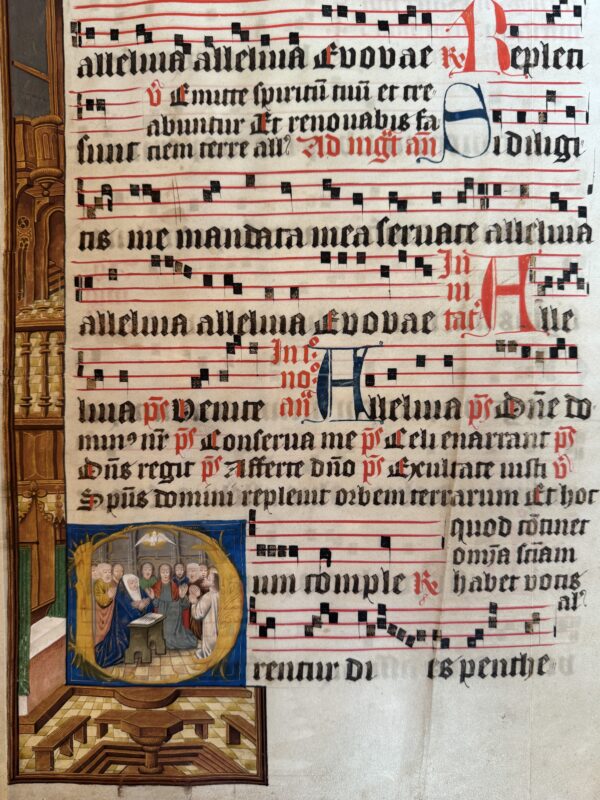 alleluia alleluia Evovae R̷ Repleti
v̷ Emitte spiritū tuū et cre
abuntur Et renouabis fa
sunt ciem terre all' Ad mgt̄ an̄ Si diligi
tis me mandata mea seruate alleluia
alleluia alleluia Evovae In ui tat' Alle
luia ps̄ Venite In i° no° an̄ Alleluia ps̄ Dn̄e do
min' nr̄ ps̄ Conserua me ps̄ Celi enarrant ps̄
Dn̄s regit ps̄ Afferte dn̄o ps̄ Exultate iusti v̷
Spūs domini repleuit orbem terrarum Et hoc
quod cōtinet
om̄ia sciam
Cum comple R̷ habet vocis
al'
rentur di es penthe